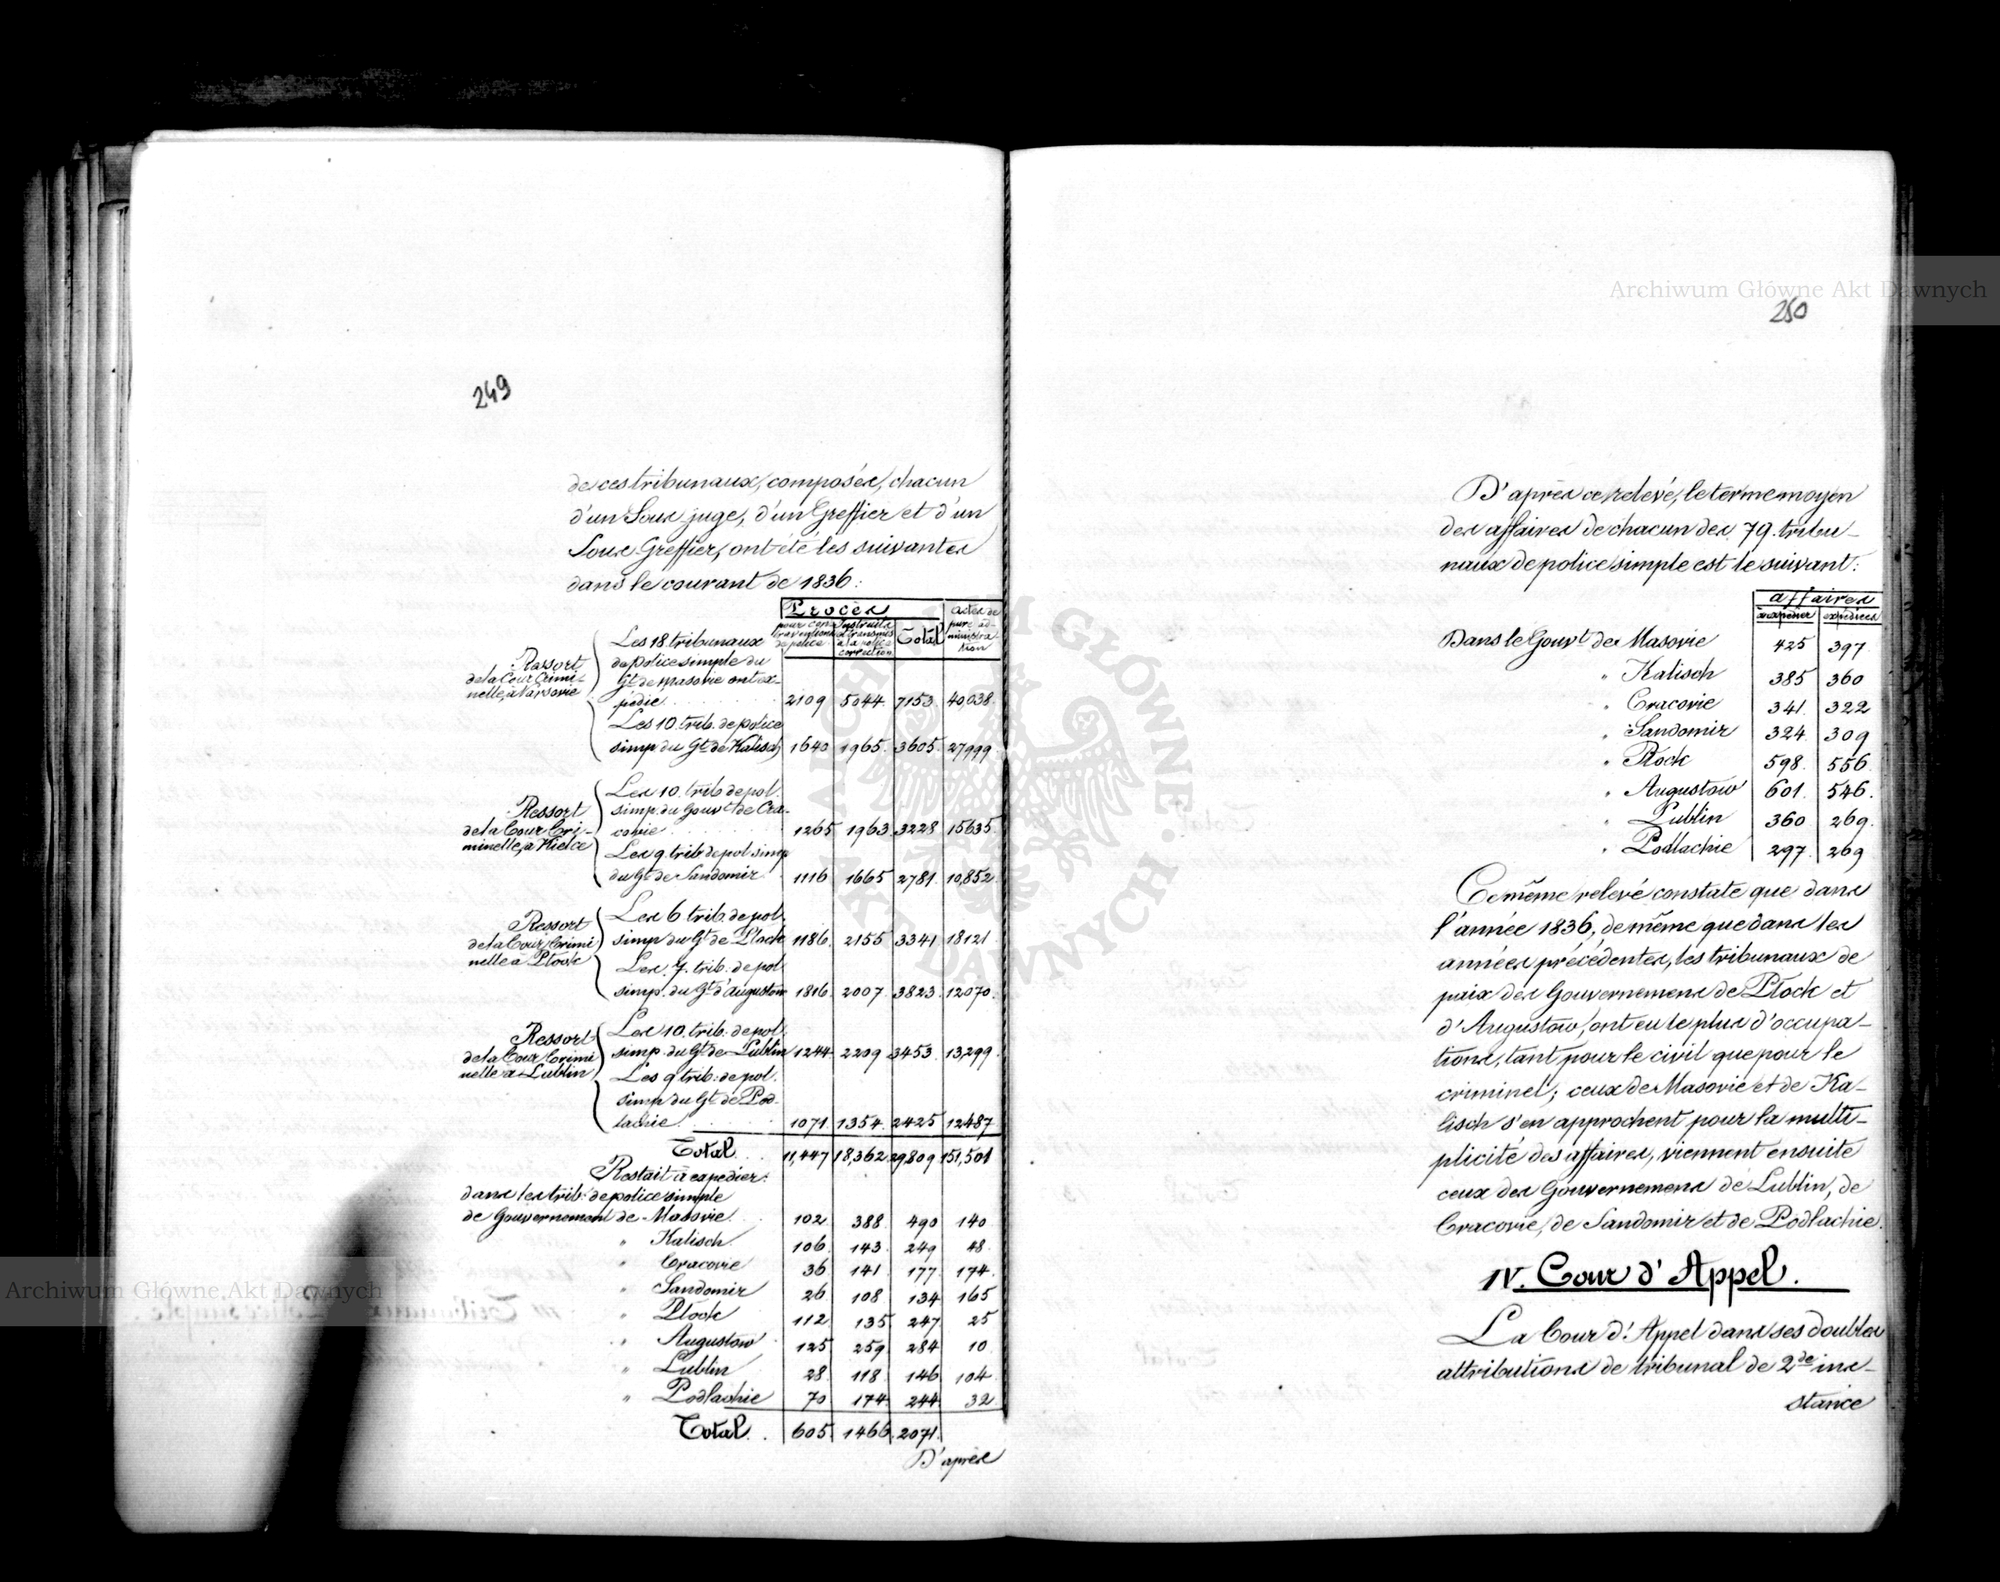 249
de ces tribunaux, composés, chacun
d'un Sous juge, d'un Greffier et d'un
Sous Greffier, ont été les suivantes
dans le courant de 1836:
Procès
actes de pure administration
pour contraventions de police
Instruits et transmis à la police correction
Total
Ressort de la Cour Criminelle, à Varsovie
Les 18 tribunaux
de police simple du
Gt. de Masovie ont ex-
pédié 2109 5044 7153 40,038
Les 10. trib. de police
simp du Gt. de Kalisch 1640 1965 3605 27999
Ressort
de la Cour Cri-
minelle, à Kielce
Les 10. trib de pol.
simp. du Gouvt. de Cra-
covie 1265 1963 3228 15635
Les 9. trib de pol simp
du Gt. de Sandomir 1116 1665 2781 10,852
Ressort
de la Cour Crimi
nelle à Plock
Les 6 trib. de pol.
simp du Gt. de Plock 1186 2155 3341 18121
Les. 7. trib: de pol
simp. du Gt. d'Augustow 1816 2007 3823 12070
Ressort
de la Cour Crimi
nelle à Lublin
Les 10. trib: de pol.
simp. du Gt. de Lublin 1244 2209 3453 13,299
Les 9 trib: de pol.
simp du Gt. de Pod-
lachie 1071 1354 2425 12487
Total 11,447 18,362 29809 151,501
Restait à expedier:
dans les trib: de police simple
de Gouvernement de Masovie 102 388 490 140
" Kalisch 106 143 249 48
" Cracovie 36 141 177 174
" Sandomir 26 108 134 165
" Plock 112 135 247 25
" Augustow 125 259 284 10
" Lublin 28 118 146 104
" Podlachie 70 174 244 32
Total 605 1466 2071
D'après
250
D'après ce relevé, le terme moyen
des affaires de chacun des 79. tribu-
naux de police simple est le suivant:
affaires
à expédier expédiées
Dans le Gouvt. de Masovie 425 397
" Kalisch 385 360
" Cracovie 341 322
" Sandomir 324 309
" Plock 598 556
" Augustow 601 546
" Lublin 360 269
" Podlachie 297 269
Ce même relevé constate que dans
l'année 1836, de même que dans les
années précédentes, les tribunaux de
paix des Gouvernemens de Plock et
d'Augustow, ont eu le plus d'occupa-
tions, tant pour le civil que pour le
criminel; ceux de Masovie et de Ka-
lisch s'en approchent pour la multi-
plicité des affaires, viennent ensuite
ceux des Gouvernemens de Lublin, de
Cracovie, de Sandomir et de Podlachie.
IV. Cour d'Appel.
La Cour d'Appel dans ses doubles
attributions de tribunal de 2de ins-
stance
Archiwum Główne Akt Dawnych
Archiwum Główne Akt Dawnych
ARCHIWUM GŁÓWNE AKT DAWNYCH